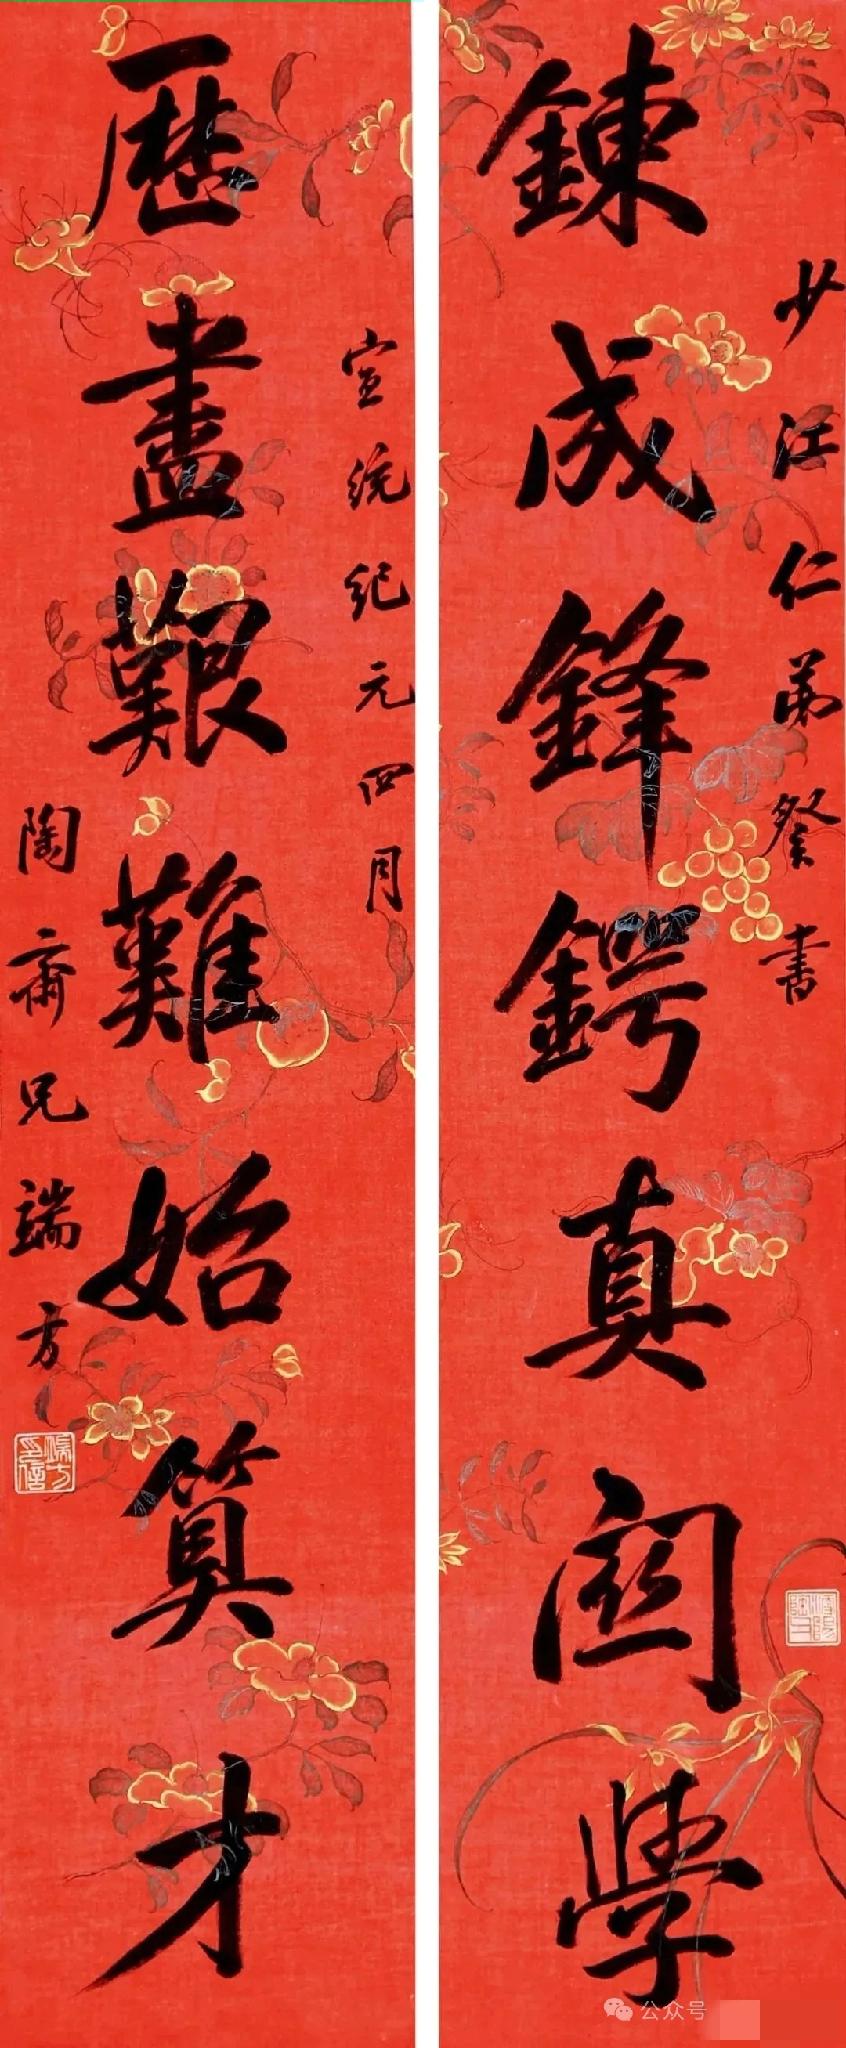 少江仁弟詧書
鍊成鋒鍔真關學
宣統紀元四月
歷盡艱難始算才
陶齋兄端方
端方印信
公众号